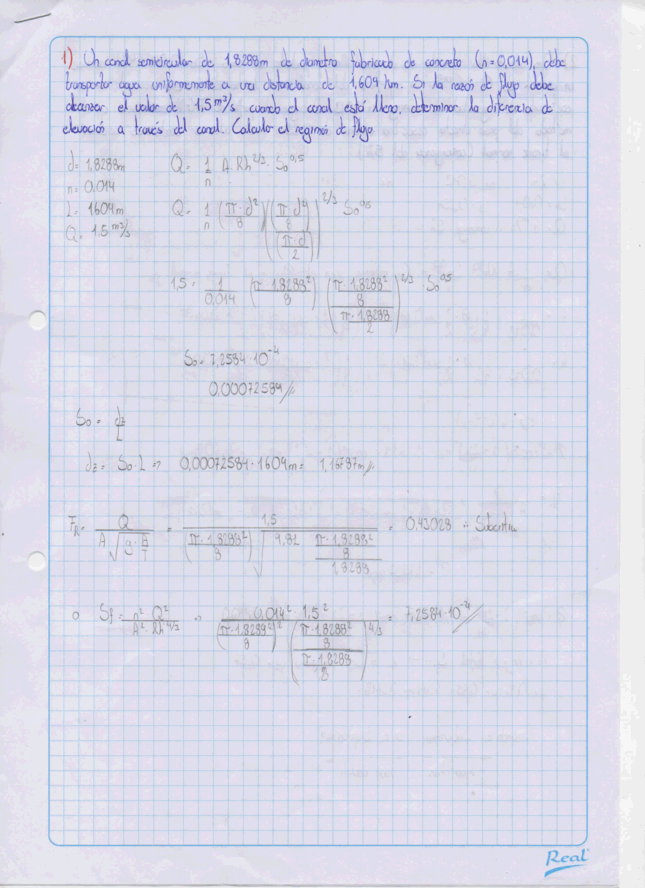 1) Un canal semicircular de 1,8288m de diametro fabricado de concreto (n=0,014), debe
transportar agua uniformemente a una distancia de 1,609 km. Si la razón de flujo debe
alcanzar el valor de 1,5 m³/s cuando el canal está lleno, determinar la diferencia de
elevación a través del canal. Calcular el regimen de flujo.
d= 1,8288m Q= 1/n A. Rh^2/3 . So^0,5
n= 0,014
L= 1604m Q= 1/n (π·d²/8) ((π·d²/8)/(π·d/2))^2/3 So^0,5
Q= 1.5 m³/s
1,5 = 1/0,014 (π·1,8288²/8) ((π·1,8288²/8)/(π·1,8288/2))^2/3 · So^0,5
So= 7,2584·10^-4
0.00072584//
So = dz/L
dz= So·L => 0,00072584·1604m= 1,16787m//
FR= Q/(A √(g·A/T)) = 1,5/((π·1,8288²/8) √(9,81 (π·1,8288²/8)/1,8288)) = 0,43028 ∴ Subcritico
o Sf = n² Q²/(A² · Rh^4/3) = 0,014² · 1.5²/((π·1,8288²/8)² ((π·1,8288²/8)/(π·1,8288/2))^4/3) = 7,2584·10^-4//
Real